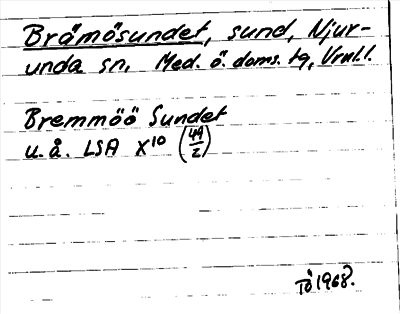 Brämösundet, sund, Njur-
unda sn, Med. ö. doms. tg, Vrnl.l.
Bremmöö Sundet
u.å. LSA X¹⁰ (49/2)
1968.